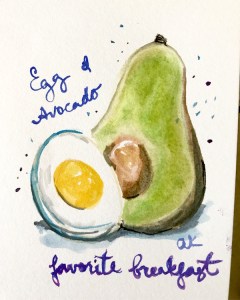 Egg &
Avocado
aK
favorite breakfast